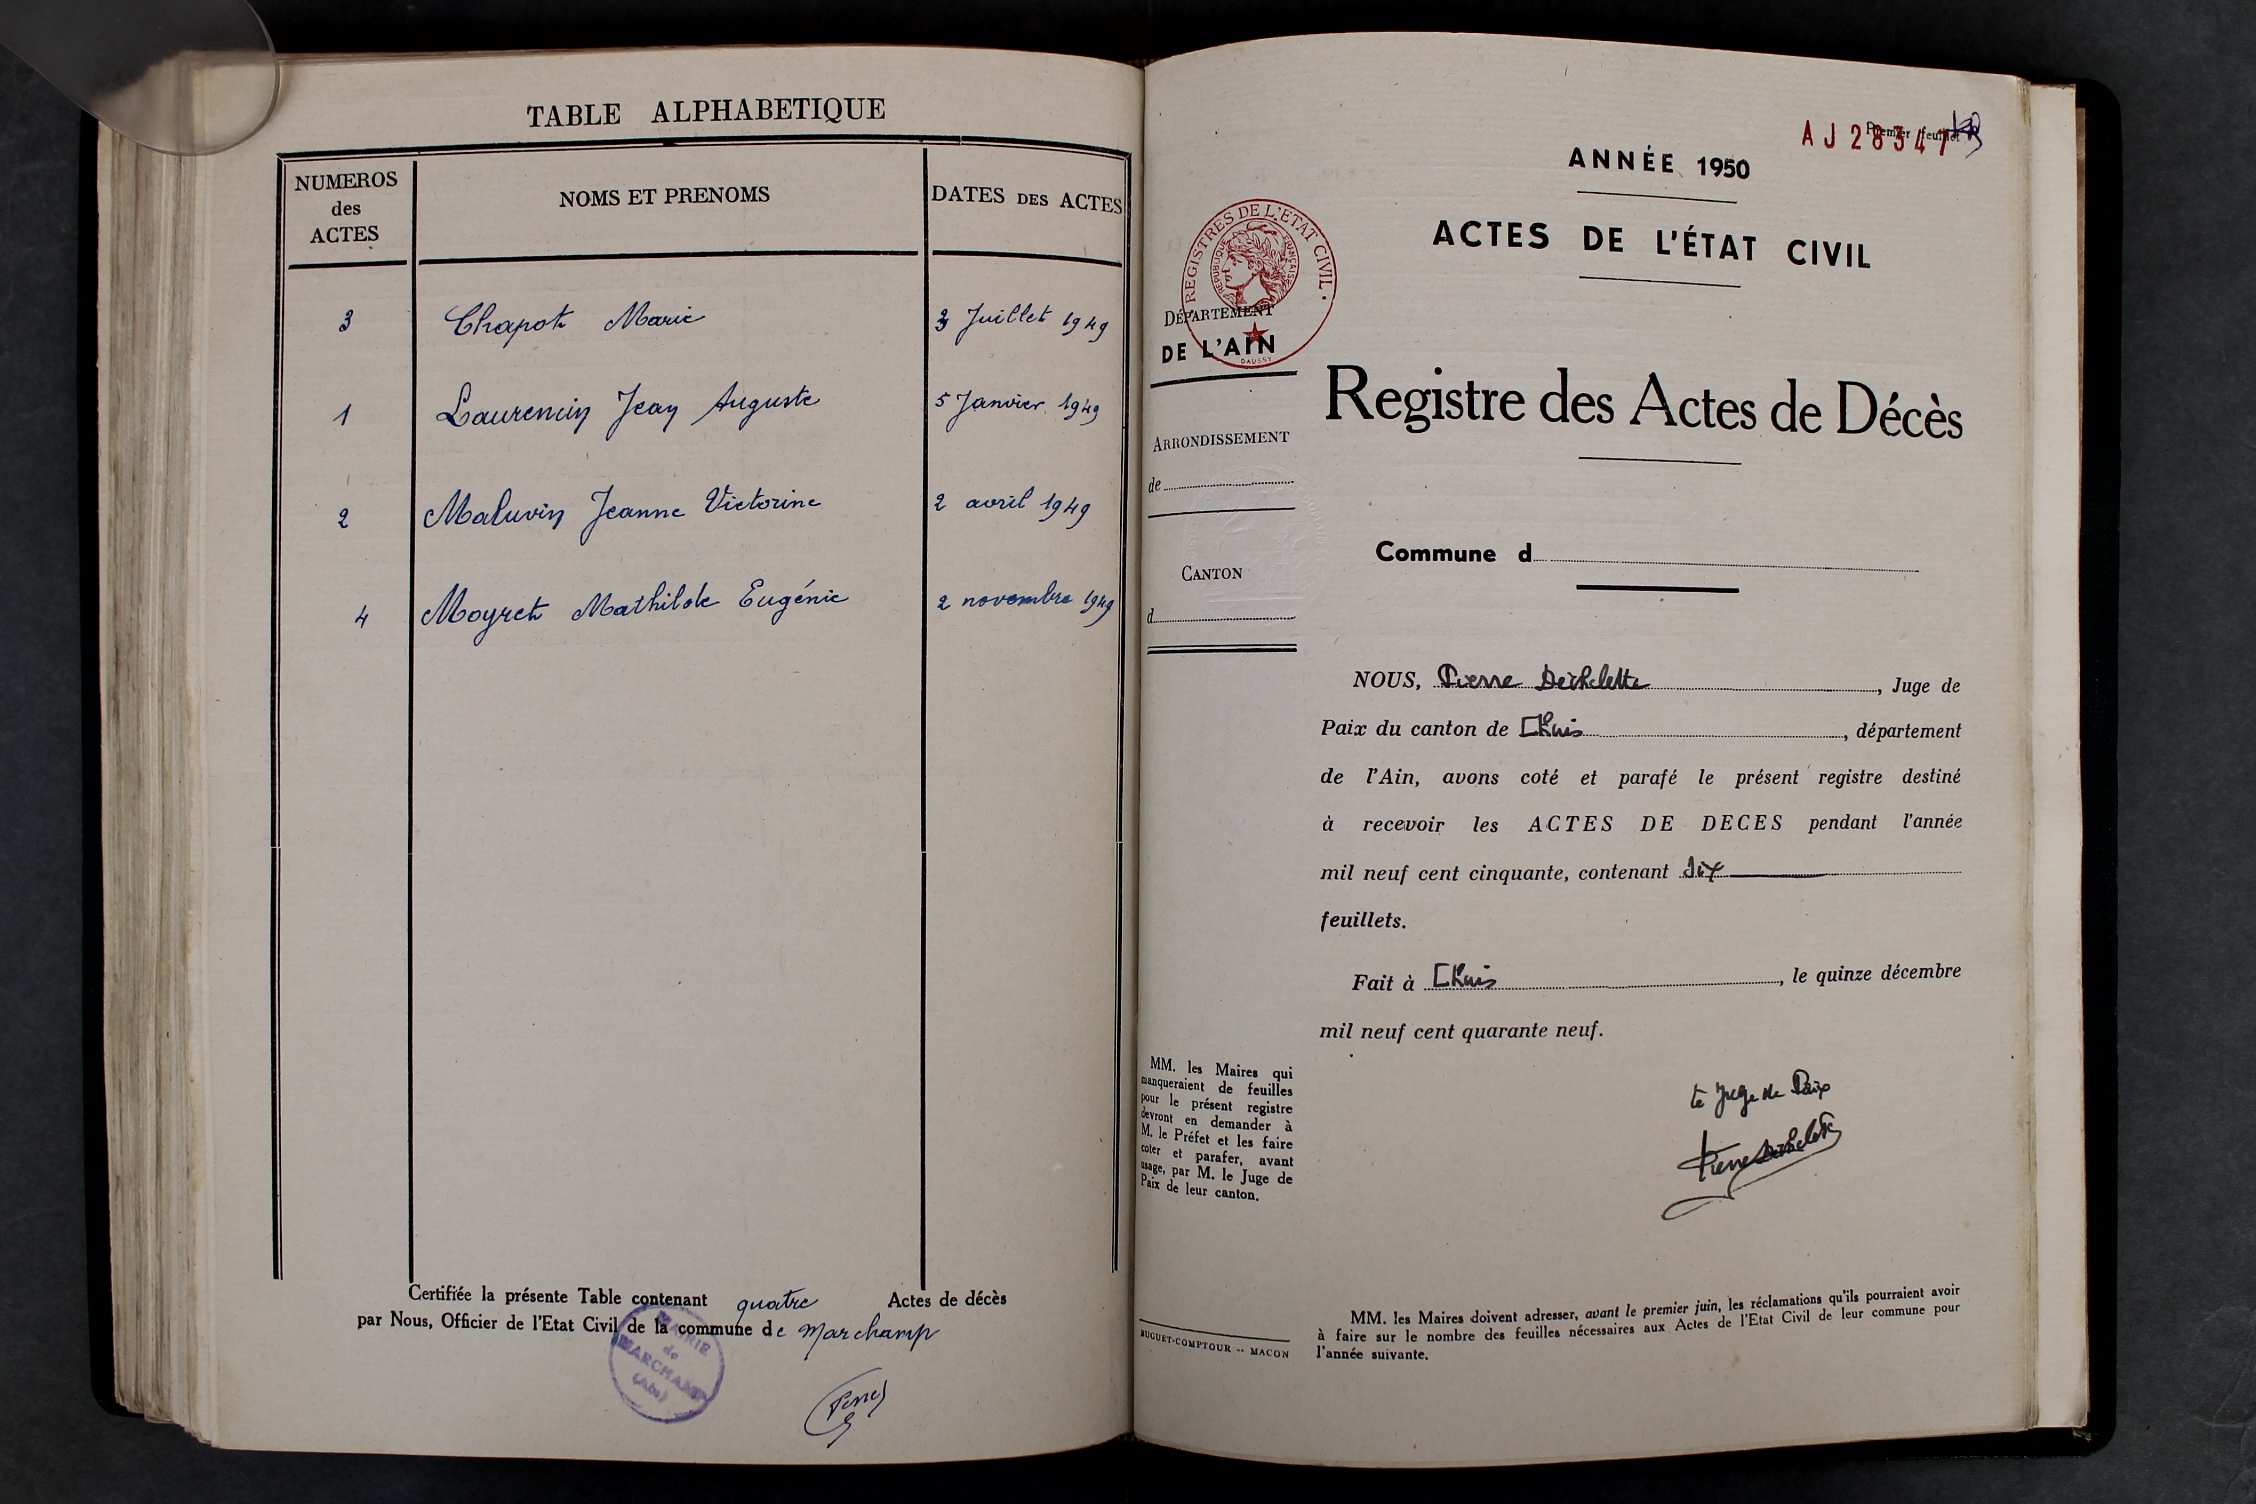 TABLE ALPHABETIQUE
NUMEROS
des
ACTES
NOMS ET PRENOMS
DATES DES ACTES
3 Chapot Marie 3 Juillet 1949
1 Laurencin Jean Auguste 5 Janvier 1949
2 Maluvin Jeanne Victorine 2 avril 1949
4 Moyret Mathilde Eugénie 2 novembre 1949
Certifiée la présente Table contenant quatre Actes de décès
par Nous, Officier de l'Etat Civil de la commune de Marchamp
MAIRIE
de
MARCHAMP
(Ain)
Premier feuillet
AJ28347
ANNÉE 1950
ACTES DE L'ÉTAT CIVIL
REGISTRES DE L'ETAT CIVIL
REPUBLIQUE FRANÇAISE
DAUSSY
DÉPARTEMENT
DE L'AIN
Registre des Actes de Décès
ARRONDISSEMENT
de
Commune d
CANTON
d
NOUS, Pierre Dechelette, Juge de
Paix du canton de Lhuis, département
de l'Ain, avons coté et parafé le présent registre destiné
à recevoir les ACTES DE DECES pendant l'année
mil neuf cent cinquante, contenant dix
feuillets.
Fait à Lhuis, le quinze décembre
mil neuf cent quarante neuf.
MM. les Maires qui
manqueraient de feuilles
pour le présent registre
devront en demander à
M. le Préfet et les faire
coter et parafer, avant
usage, par M. le Juge de
Paix de leur canton.
Le Juge de Paix
Pierre Dechelette
MM. les Maires doivent adresser, avant le premier juin, les réclamations qu'ils pourraient avoir
à faire sur le nombre des feuilles nécessaires aux Actes de l'Etat Civil de leur commune pour
l'année suivante.
BUGUET-COMPTOUR -- MACON